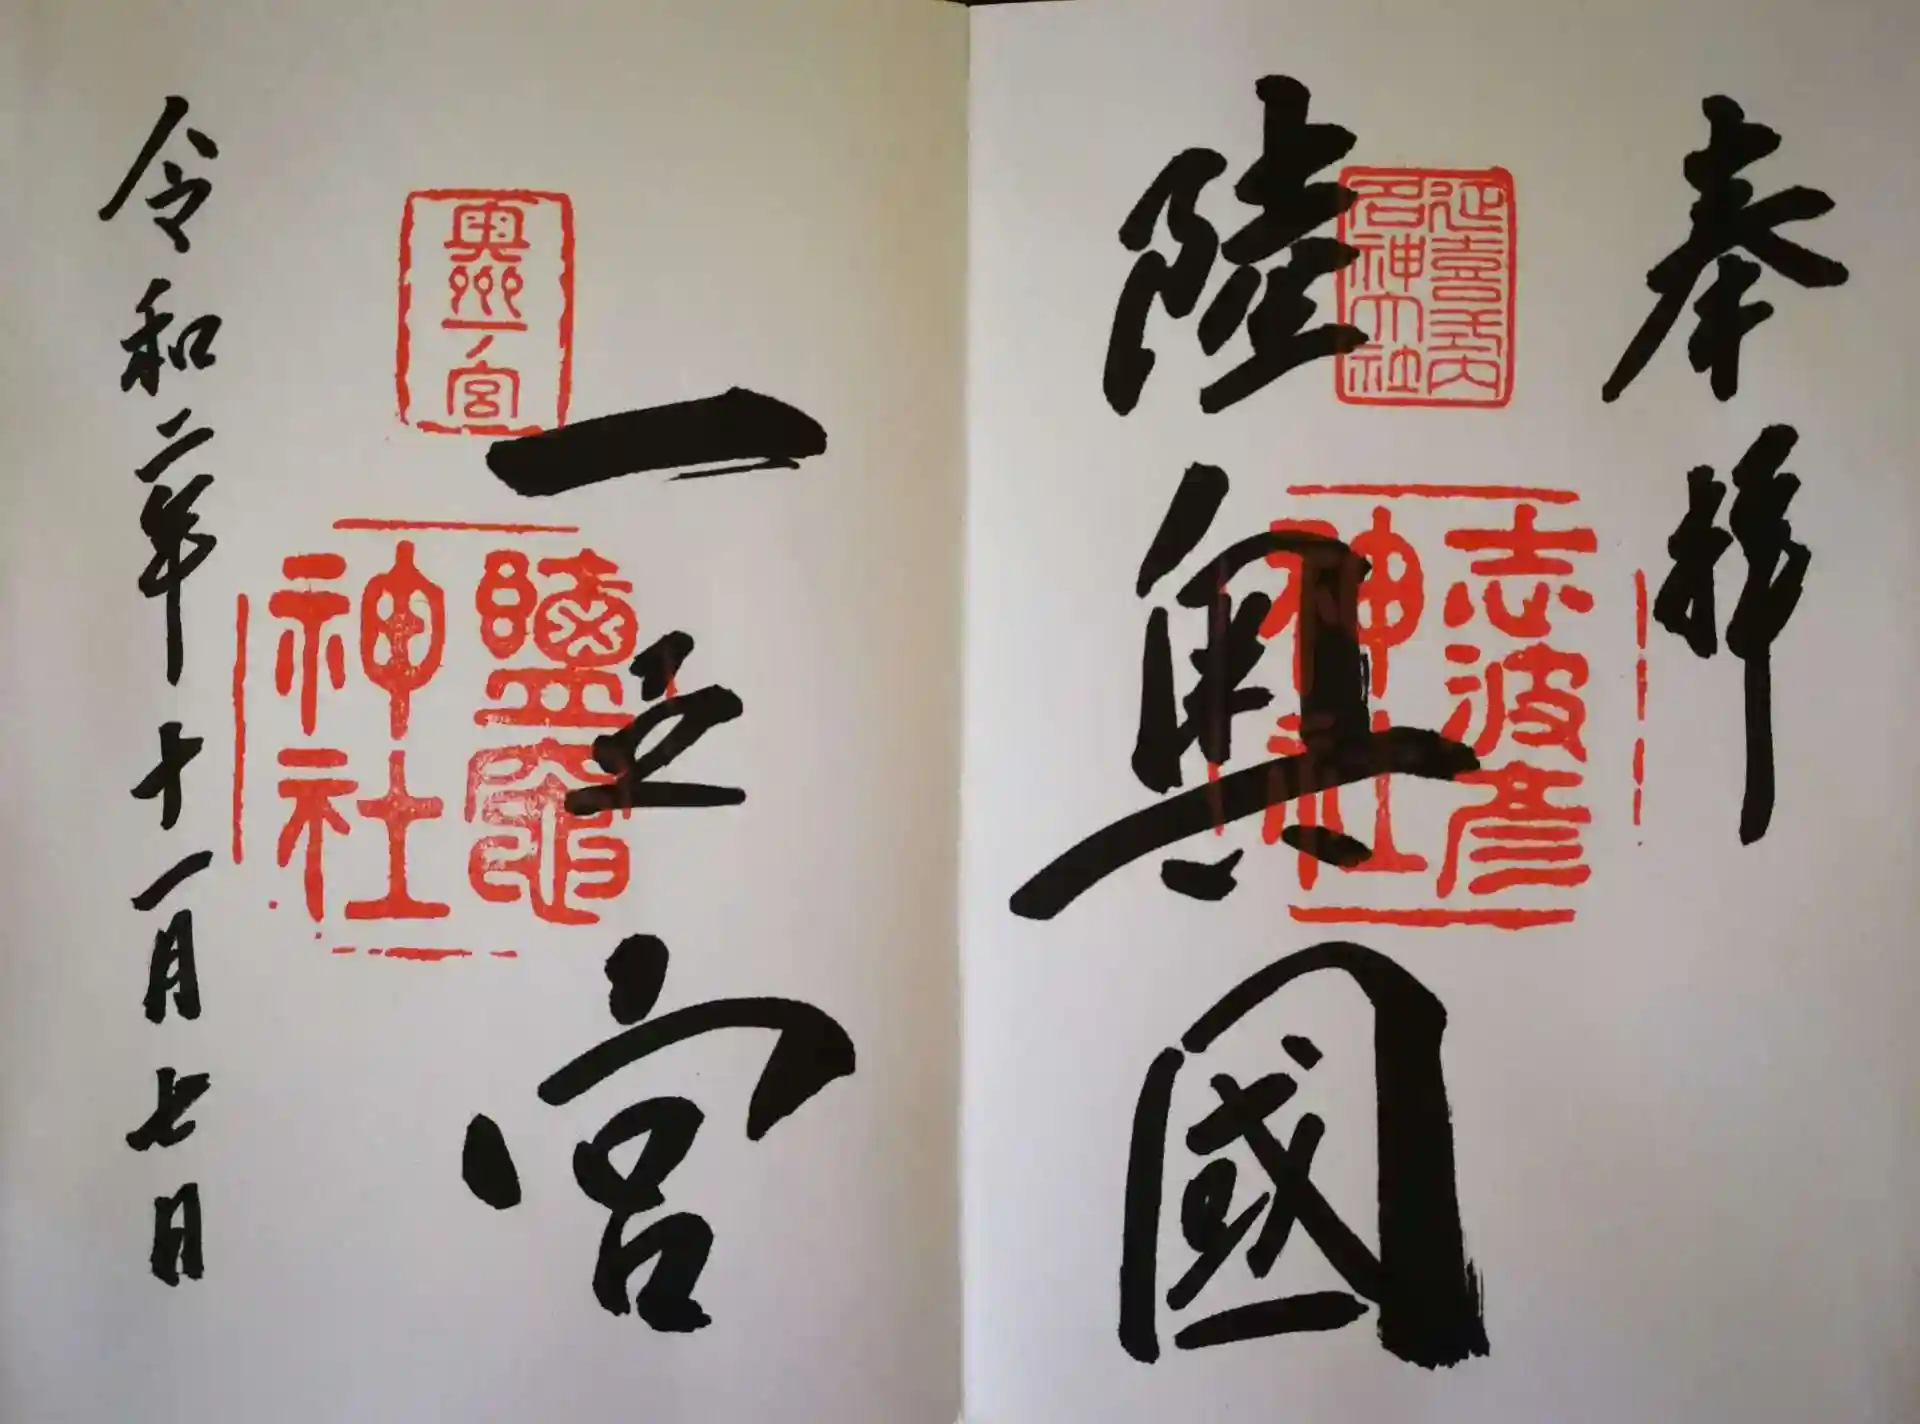 奉拝
延喜式内
名神大社
陸奥國
志波彦
神社
奥州一ノ宮
一之宮
鹽竈
神社
令和二年十一月七日